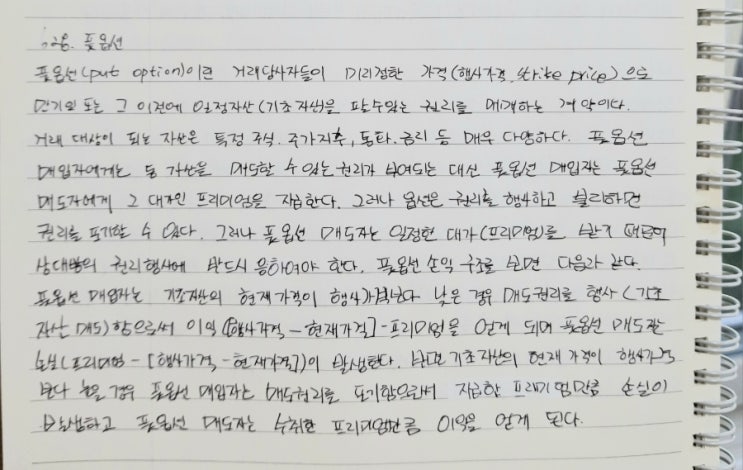 용. 풋옵션
풋옵션(put option)이란 거래당사자들이 미리정한 가격(행사가격, strike price)으로
만기일 또는 그 이전에 일정자산(기초자산)을 팔수있는 권리를 매매하는 계약이다.
거래 대상이 되는 자산은 특정 주식, 주가지수, 통화, 금리 등 매우 다양하다. 풋옵션
매입자에게는 동 자산을 매도할 수 있는 권리가 부여되는 대신 풋옵션 매입자는 풋옵션
매도자에게 그 대가인 프리미엄을 지급한다. 그러나 옵션은 권리를 행사하고 불리하면
권리를 포기할 수 있다. 그러나 풋옵션 매도자는 일정한 대가(프리미엄)를 받기 때문에
상대방의 권리행사에 반드시 응하여야 한다. 풋옵션 손익 구조를 보면 다음과 같다.
풋옵션 매입자는 기초자산의 현재가격이 행사가격보다 낮은 경우 매도권리를 행사(기초
자산 매도)함으로써 이익 [행사가격 - 현재가격] - 프리미엄을 얻게 되며 풋옵션 매도자는
손실(프리미엄 - [행사가격 - 현재가격])이 발생한다. 반면 기초자산의 현재 가격이 행사가격
보다 높을 경우 풋옵션 매입자는 매도권리를 포기함으로써 지급한 프리미엄만큼 손실이
발생하고 풋옵션 매도자는 수취한 프리미엄만큼 이익을 얻게 된다.